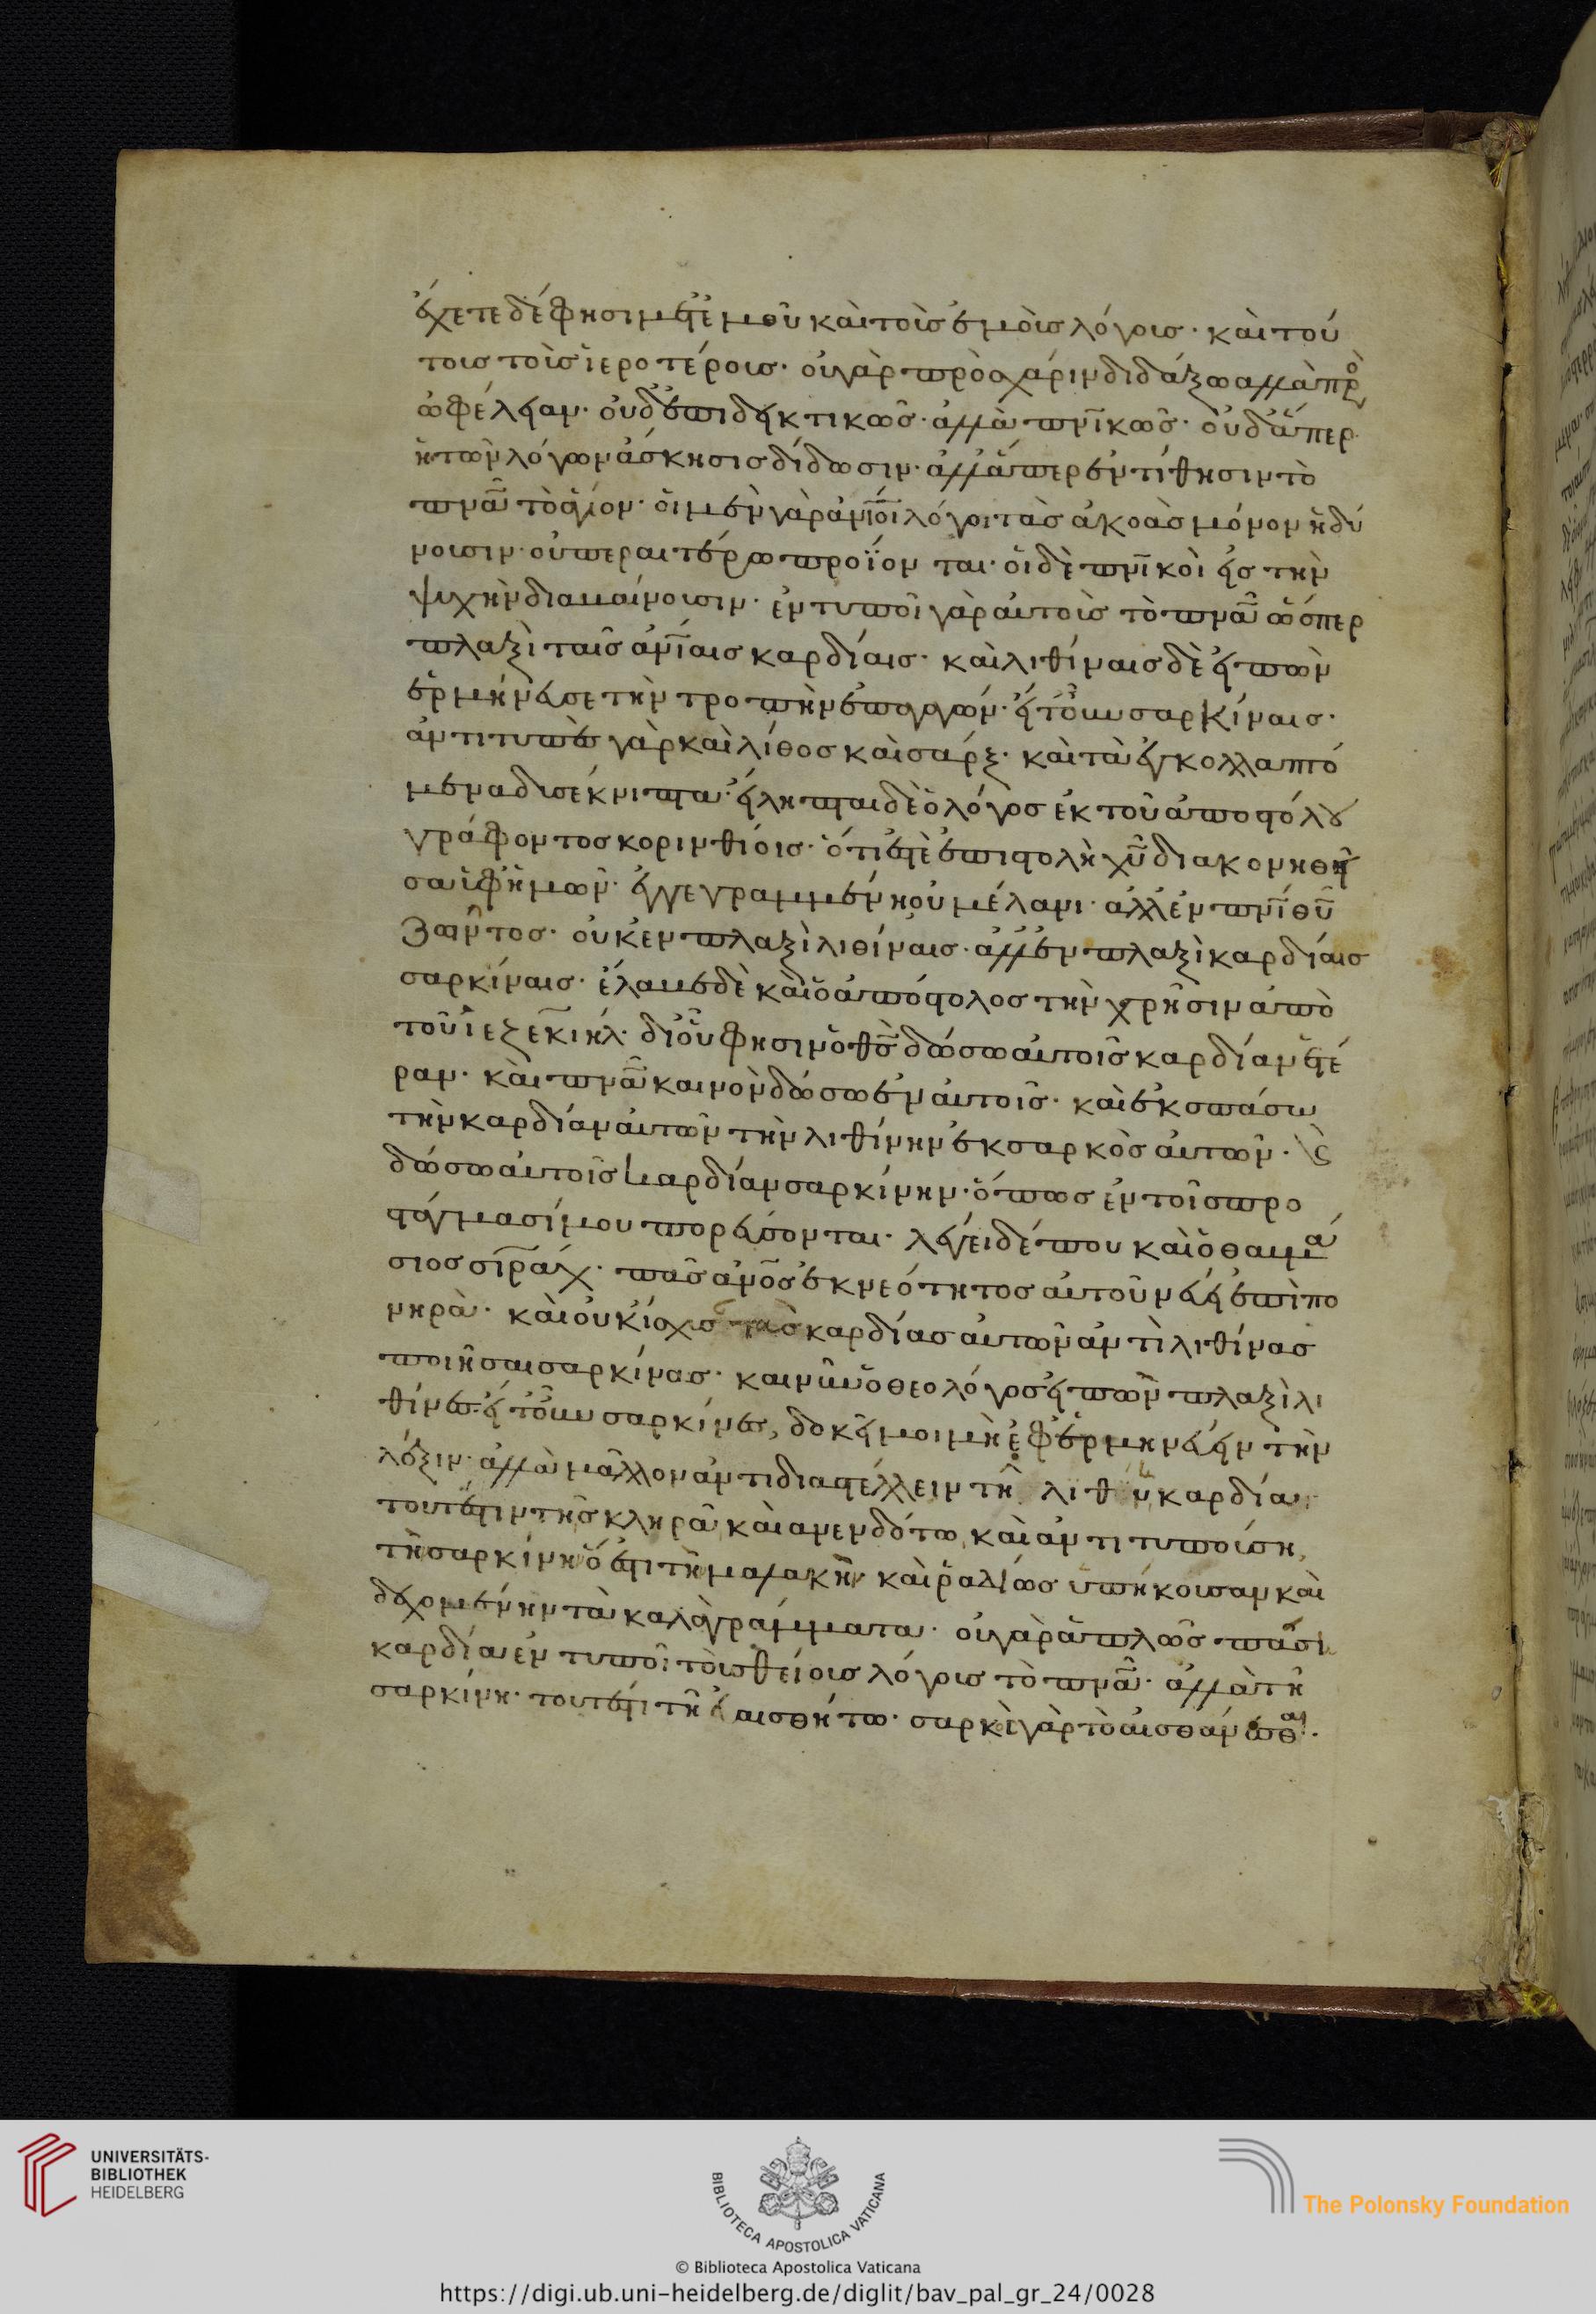 ἔχετε δέ φησι μετ ἐμοῦ καὶ τοῖς ἐμοῖς λόγοις· καὶ τού
τοις τοῖς ἱεροτέροις· οὐ γὰρ πρὸς χάριν διδάξω ἀλλὰ πρὸ
ὠφέλειαν· οὐδ ἐπιδεικτικῶς· ἀλλὰ πνικῶς· οὐδ ἅπερ
ἡ τῶν λόγων ἄσκησις δίδωσιν· ἀλλ ἅπερ ἐντίθησιν τὸ
πνᾶ τὸ ἅγιον· οἱ μὲν γὰρ ἀνινοι λόγοι τὰς ἀκοὰς μόνον ἡδύ
νουσιν· οὐ περαιτέρω προϊόνται· οἱ δὲ πνικοὶ εἰς τὴν
ψυχὴν διαβαίνουσιν· ἐντυποῖ γὰρ αὐτοῖς τὸ πνᾶ ὥσπερ
πλαξὶ ταῖς ἀνιναις καρδίαις· καὶ λιθίναις δὲ εἰπὼν
ἑρμήνευσε τὴν τροπὴν ἐπαγαγών· εἴτουν σαρκίναις·
ἀντιτυπὲς γὰρ καὶ λίθος καὶ σάρξ· καὶ τὰ ἐγκολλαπτό
μενα δυσέκνιπτα· εἴληπται δὲ ὁ λόγος ἐκ τοῦ ἀποστόλου
γράφοντος κορινθίοις· ὅτι ἐστὲ ἐπιστολὴ χῦ διακονηθεῖ
σα ὑφ ἡμῶν· ἐγγεγραμμένη οὐ μέλανι· ἀλλ ἐν πνι θῦ
ζῶντος· οὐκ ἐν πλαξὶ λιθίναις· ἀλλ ἐν πλαξὶ καρδίαις
σαρκίναις· ἔλαβε δὲ καὶ ὁ ἀπόστολος τὴν χρῆσιν ἀπὸ
τοῦ ἰεζεκιήλ· δι οὗ φησιν ὁ θς δώσω αὐτοῖς καρδίαν ἑτέ
ραν· καὶ πνᾶ καινὸν δώσω ἐν αὐτοῖς· καὶ ἐκσπάσω
τὴν καρδίαν αὐτῶν τὴν λιθίνην ἐκ σαρκὸς αὐτῶν· ϗ
δώσω αὐτοῖς καρδίαν σαρκίνην· ὅπως ἐν τοῖς προ
στάγμασί μου πορεύσονται· λέγει δέ που καὶ ὁ θαυμά
σιος σιράχ· πᾶς ἀνος ἐκ νεότητος αὐτοῦ νεύει ἐπὶ πο
νηρὰ· καὶ οὐκ ἴσχυσε τὰς καρδίας αὐτῶν ἀντὶ λιθίνας
ποιῆσαι σαρκίνας· καὶ νῦν ὁ θεολόγος εἰπὼν πλαξὶ λι
θίναις εἴτουν σαρκίναις, δοκεῖ μοι μὴ ἐφερμηνεύειν τὴν
λέξιν· ἀλλὰ μᾶλλον ἀντιδιαστέλλειν τῆ λιθίνη καρδία·
τουτέστιν τῆ σκληρᾶ καὶ ἀνενδότω καὶ ἀντιτυπούση,
τῆ σαρκίνη ὅ ἐστι τῆ μαλακῆ καὶ ῥαδίως ὑπήκουσαν καὶ
δεχομένην τὰ καλὰ γράμματα· οὐ γὰρ ἁπλῶς πάση
καρδία ἐντυποῖ τοῖς θείοις λόγοις τὸ πνᾶ· ἀλλὰ τῆ
σαρκίνη· τουτέστι τῆ εὐαισθήτω· σαρκὶ γὰρ τὸ αἰσθάνεσθαι·
UNIVERSITÄTS-
BIBLIOTHEK
HEIDELBERG
BIBLIOTECA APOSTOLICA VATICANA
The Polonsky Foundation
© Biblioteca Apostolica Vaticana
https://digi.ub.uni-heidelberg.de/diglit/bav_pal_gr_24/0028